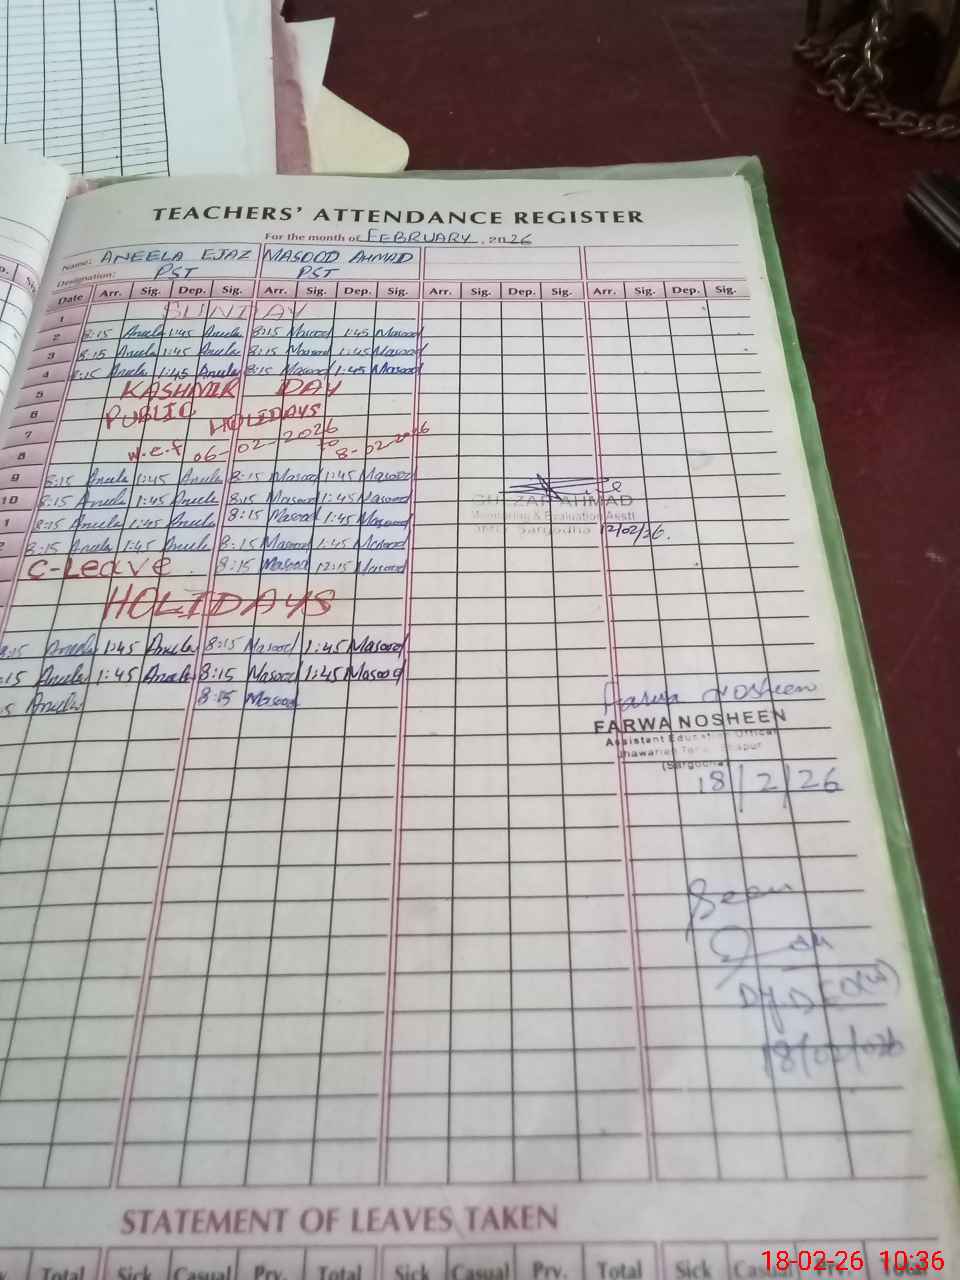 TEACHERS' ATTENDANCE REGISTER
For the month of FEBRUARY, 2026
Name: ANEELA EJAZ MASOOD AHMAD
Designation: PST PST
Date Arr. Sig. Dep. Sig. Arr. Sig. Dep. Sig. Arr. Sig. Dep. Sig. Arr. Sig. Dep. Sig.
1 SUNDAY
2 8:15 Aneela 1:45 Aneela 8:15 Masood 1:45 Masood
3 8:15 Aneela 1:45 Aneela 8:15 Masood 1:45 Masood
4 8:15 Aneela 1:45 Aneela 8:15 Masood 1:45 Masood
5 KASHMIR DAY
6 PUBLIC HOLIDAYS
7
8 w.e.f 06-02-2026 to 8-02-2026
9 8:15 Aneela 1:45 Aneela 8:15 Masood 1:45 Masood
10 8:15 Aneela 1:45 Aneela 8:15 Masood 1:45 Masood
1 8:15 Aneela 1:45 Aneela 8:15 Masood 1:45 Masood
2 8:15 Aneela 1:45 Aneela 8:15 Masood 1:45 Masood
C-Leave 8:15 Masood 12:15 Masood
HOLIDAYS
8:15 Aneela 1:45 Aneela 8:15 Masood 1:45 Masood
:15 Aneela 1:45 Aneela 8:15 Masood 1:45 Masood
5 Aneela 8:15 Masood
AHMAD
Monitoring & Evaluation Asstt
Sargodha 12/02/26.
Farwa Nosheen
FARWA NOSHEEN
Assistant Education Officer
Jhawarian
(Sargodha)
18/2/26
Seen
Dy DEO(W)
18/02/026
STATEMENT OF LEAVES TAKEN
Total Sick Casual Prv. Total Sick Casual Prv. Total Sick Casual Prv. Total
18-02-26 10:36